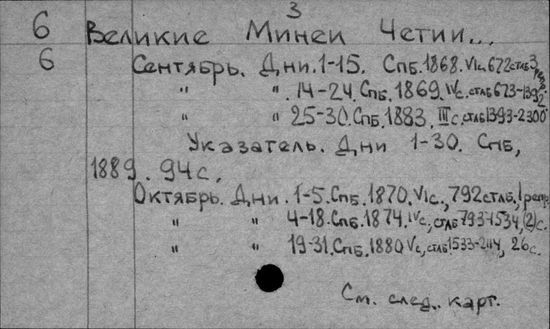 3
6 Великие Минеи Четии...
6 Сентябрь. Дни. 1-15. Спб. 1868. VIс. 672 стлб. 3
" " 14-24. Спб. 1869. IVс. стлб 673-1392
" " 25-30. Спб. 1883. IIIс. стлб 1393-2300
Указатель. Дни 1-30. Спб,
1889. 94с.
Октябрь. Дни. 1-5. Спб. 1870. VIс., 792 стлб., 1
" " 4-18. Спб. 1874. IVс, стлб 793-1534, (2)с.
" " 19-31. Спб. 1880 Vс, стлб. 26с.
См. след. карт.